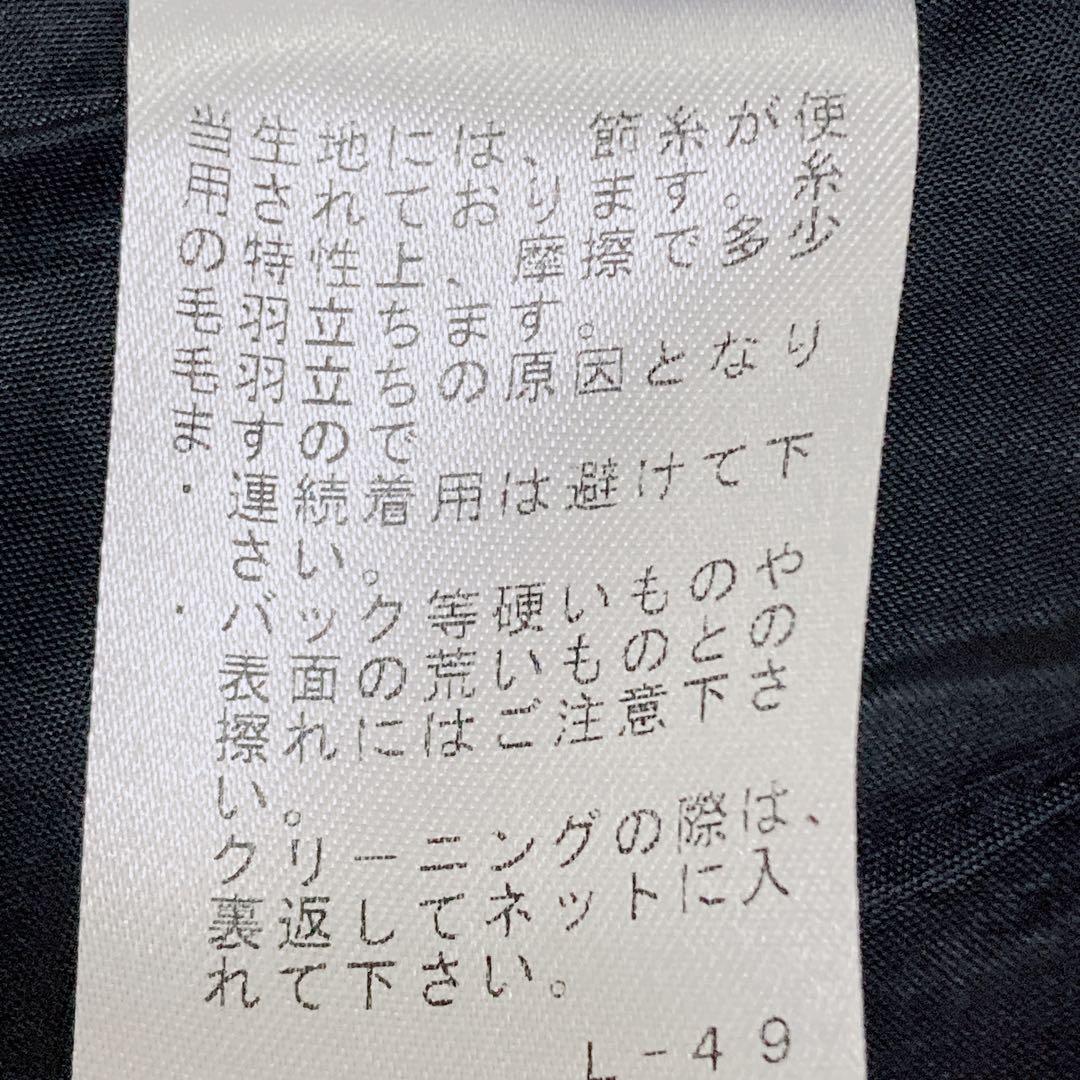 当生地には、節糸が使
用されております。糸
の特性上、摩擦で多少
毛羽立ちます。
毛羽立ちの原因となり
ますので
・連続着用は避けて下
さい。
・バック等硬いものや
表面の荒いものとの
擦れにはご注意下さ
い。
クリーニングの際は、
裏返してネットに入
れて下さい。
L-49